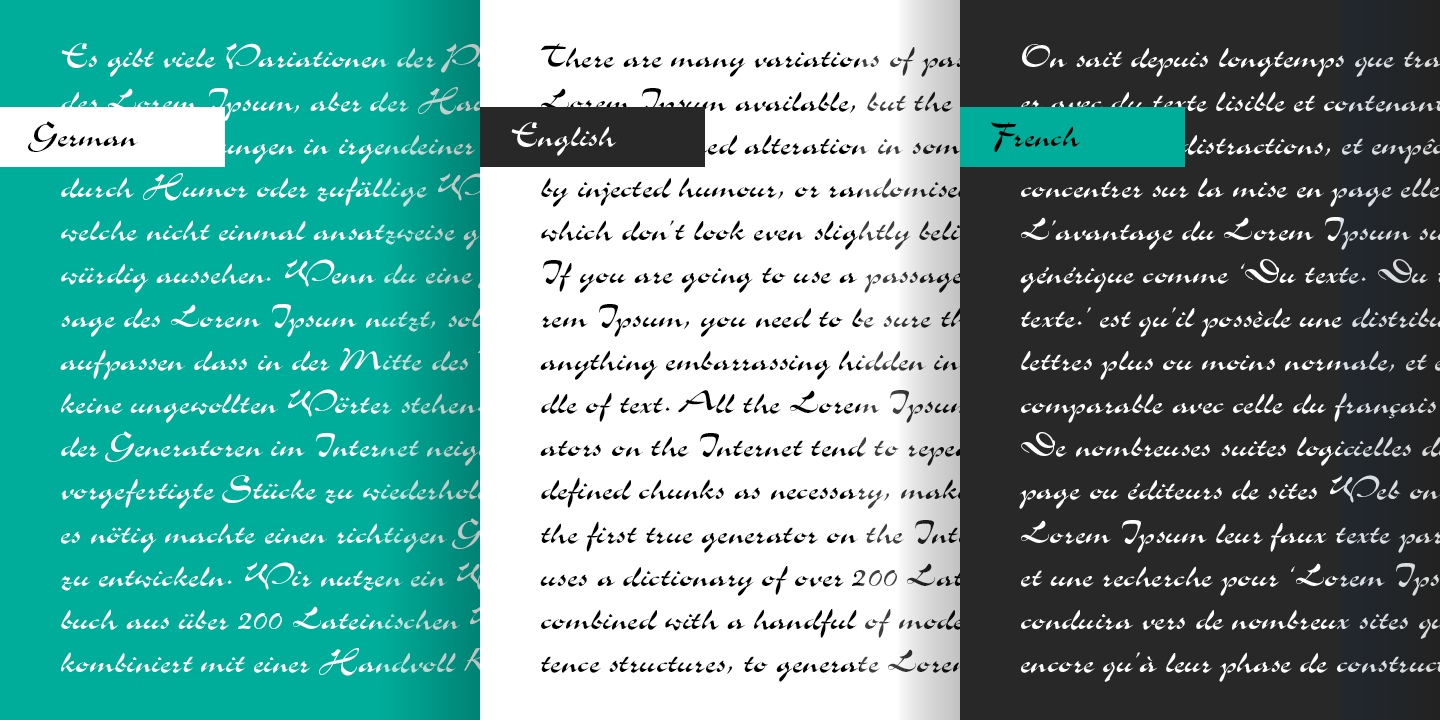 Es gibt viele Variationen der
des Lorem Ipsum, aber der
German
ungen in irgendeiner
durch Humor oder zufällige
welche nicht einmal ansatzweise
würdig aussehen. Wenn du eine
sage des Lorem Ipsum nutzt,
aufpassen dass in der Mitte des
keine ungewollten Wörter stehen
der Generatoren im Internet
vorgefertigte Stücke zu
es nötig machte einen richtigen
zu entwickeln. Wir nutzen ein
buch aus über 200 Lateinischen
kombiniert mit einer Handvoll
There are many variations of
Lorem Ipsum available, but the
English
ed alteration in
by injected humour, or
which don't look even slightly
If you are going to use a passage
rem Ipsum, you need to be sure
anything embarrassing hidden in
dle of text. All the Lorem Ipsum
ators on the Internet tend to
defined chunks as necessary,
the first true generator on the
uses a dictionary of over 200
combined with a handful of
tence structures, to generate
On sait depuis longtemps que
er avec du texte lisible et contenant
French
distractions, et
concentrer sur la mise en page elle
L'avantage du Lorem Ipsum
générique comme 'Du texte. Du
texte.' est qu'il possède une
lettres plus ou moins normale, et
comparable avec celle du français
De nombreuses suites logicielles
page ou éditeurs de sites Web
Lorem Ipsum leur faux texte
et une recherche pour 'Lorem
conduira vers de nombreux sites
encore qu'à leur phase de